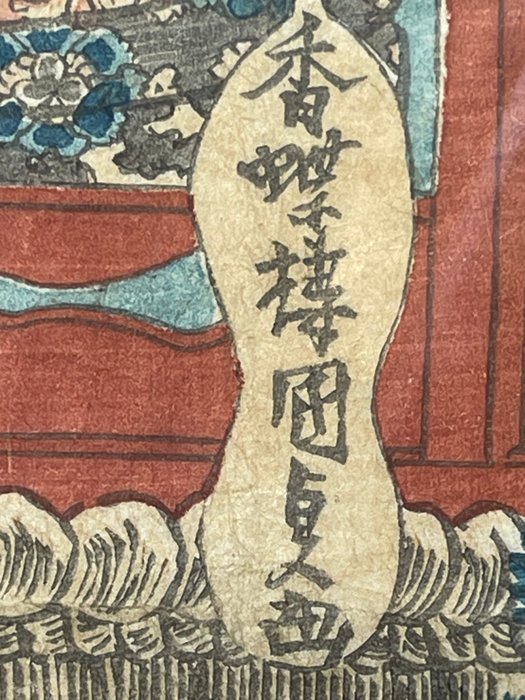 香蝶楼国貞画